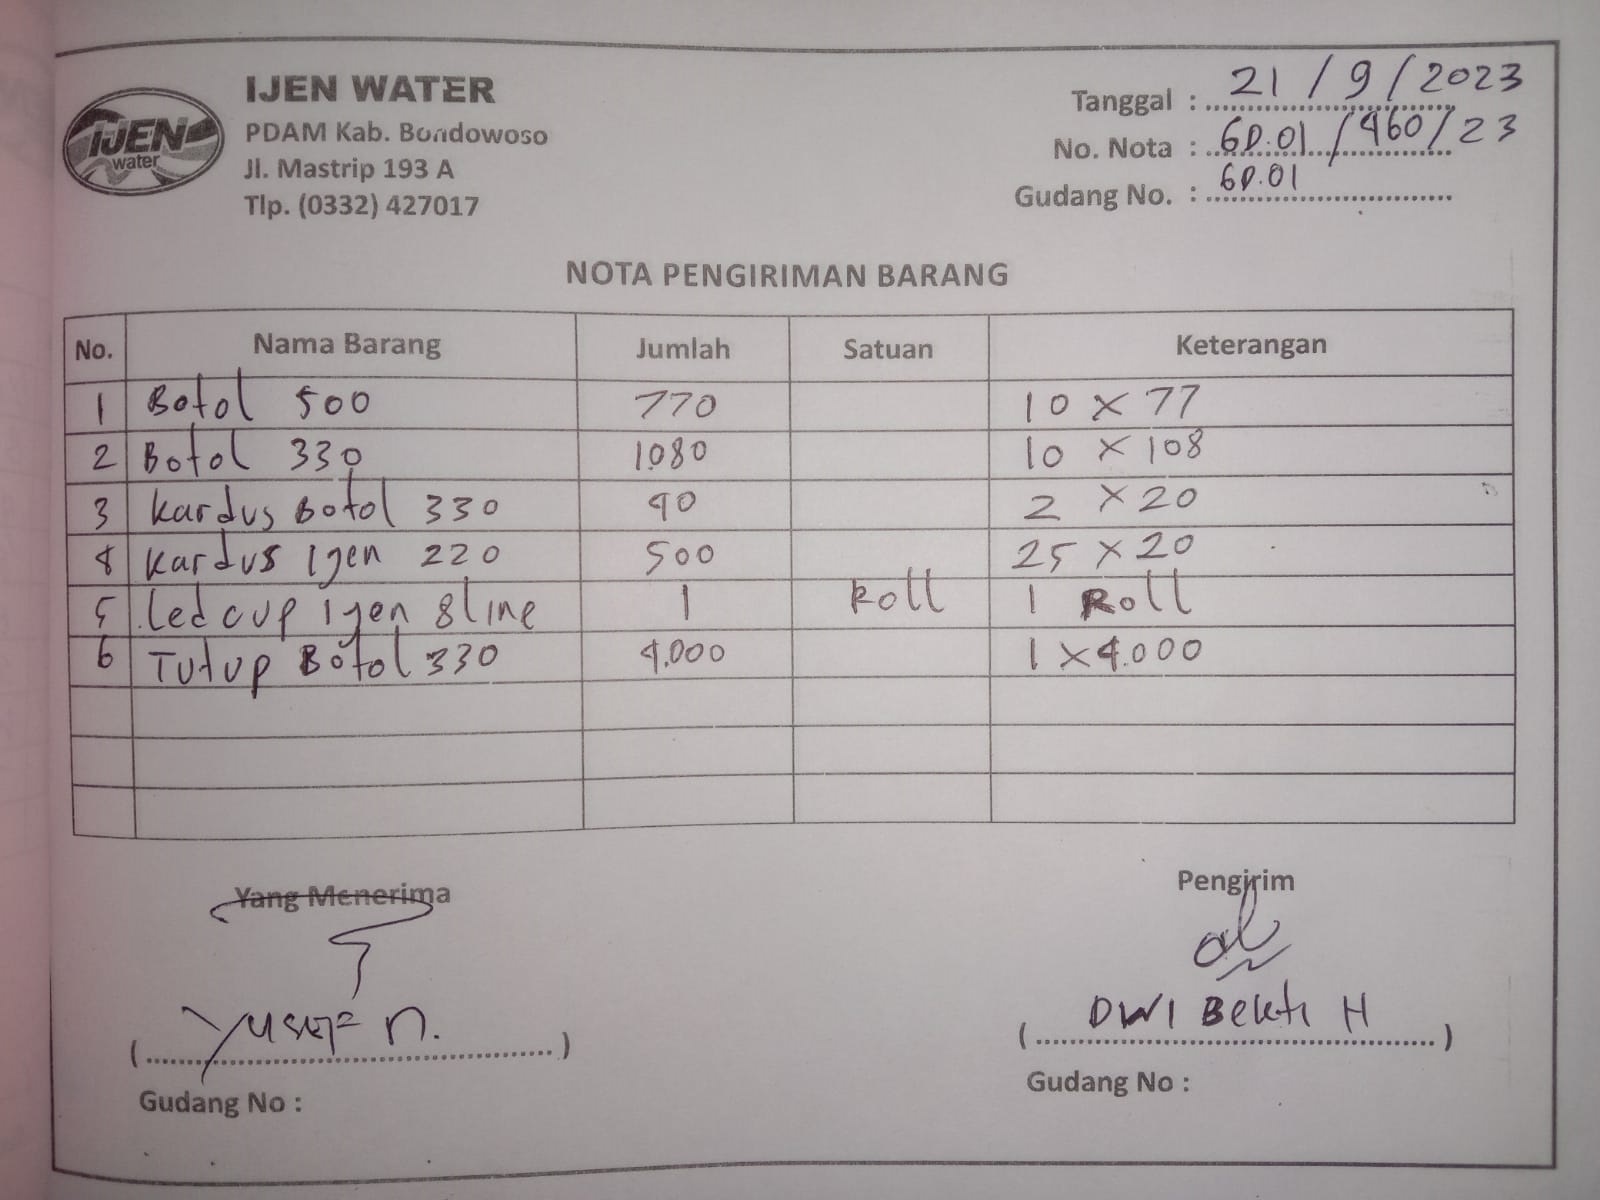 IJEN
water
IJEN WATER
PDAM Kab. Bondowoso
Jl. Mastrip 193 A
Tlp. (0332) 427017
Tanggal : 21 / 9 / 2023
No. Nota : GD.01 / 460 / 23
Gudang No. : GD.01
NOTA PENGIRIMAN BARANG
No. Nama Barang Jumlah Satuan Keterangan
1 Botol 500 770 10 x 77
2 Botol 330 1080 10 x 108
3 Kardus Botol 330 40 2 x 20
4 Kardus Ijen 220 500 25 x 20
5 Led cup Ijen 8 line 1 Roll 1 Roll
6 Tutup Botol 330 4.000 1 x 4.000
Yang Menerima
Pengirim
( Yusuf n. )
( DWI Bekti H )
Gudang No :
Gudang No :